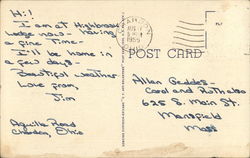 Hi!
I am at Highbrook
Lodge now - having
a fine time -
I'll be home in
a few days -
Beautiful weather
Love from,
Jim
Aquilla Road
Chardon, Ohio
CHARDON
1955
POST CARD
Allan Geddes -
Carol and
625 S. Main St.
Mansfield
Mass